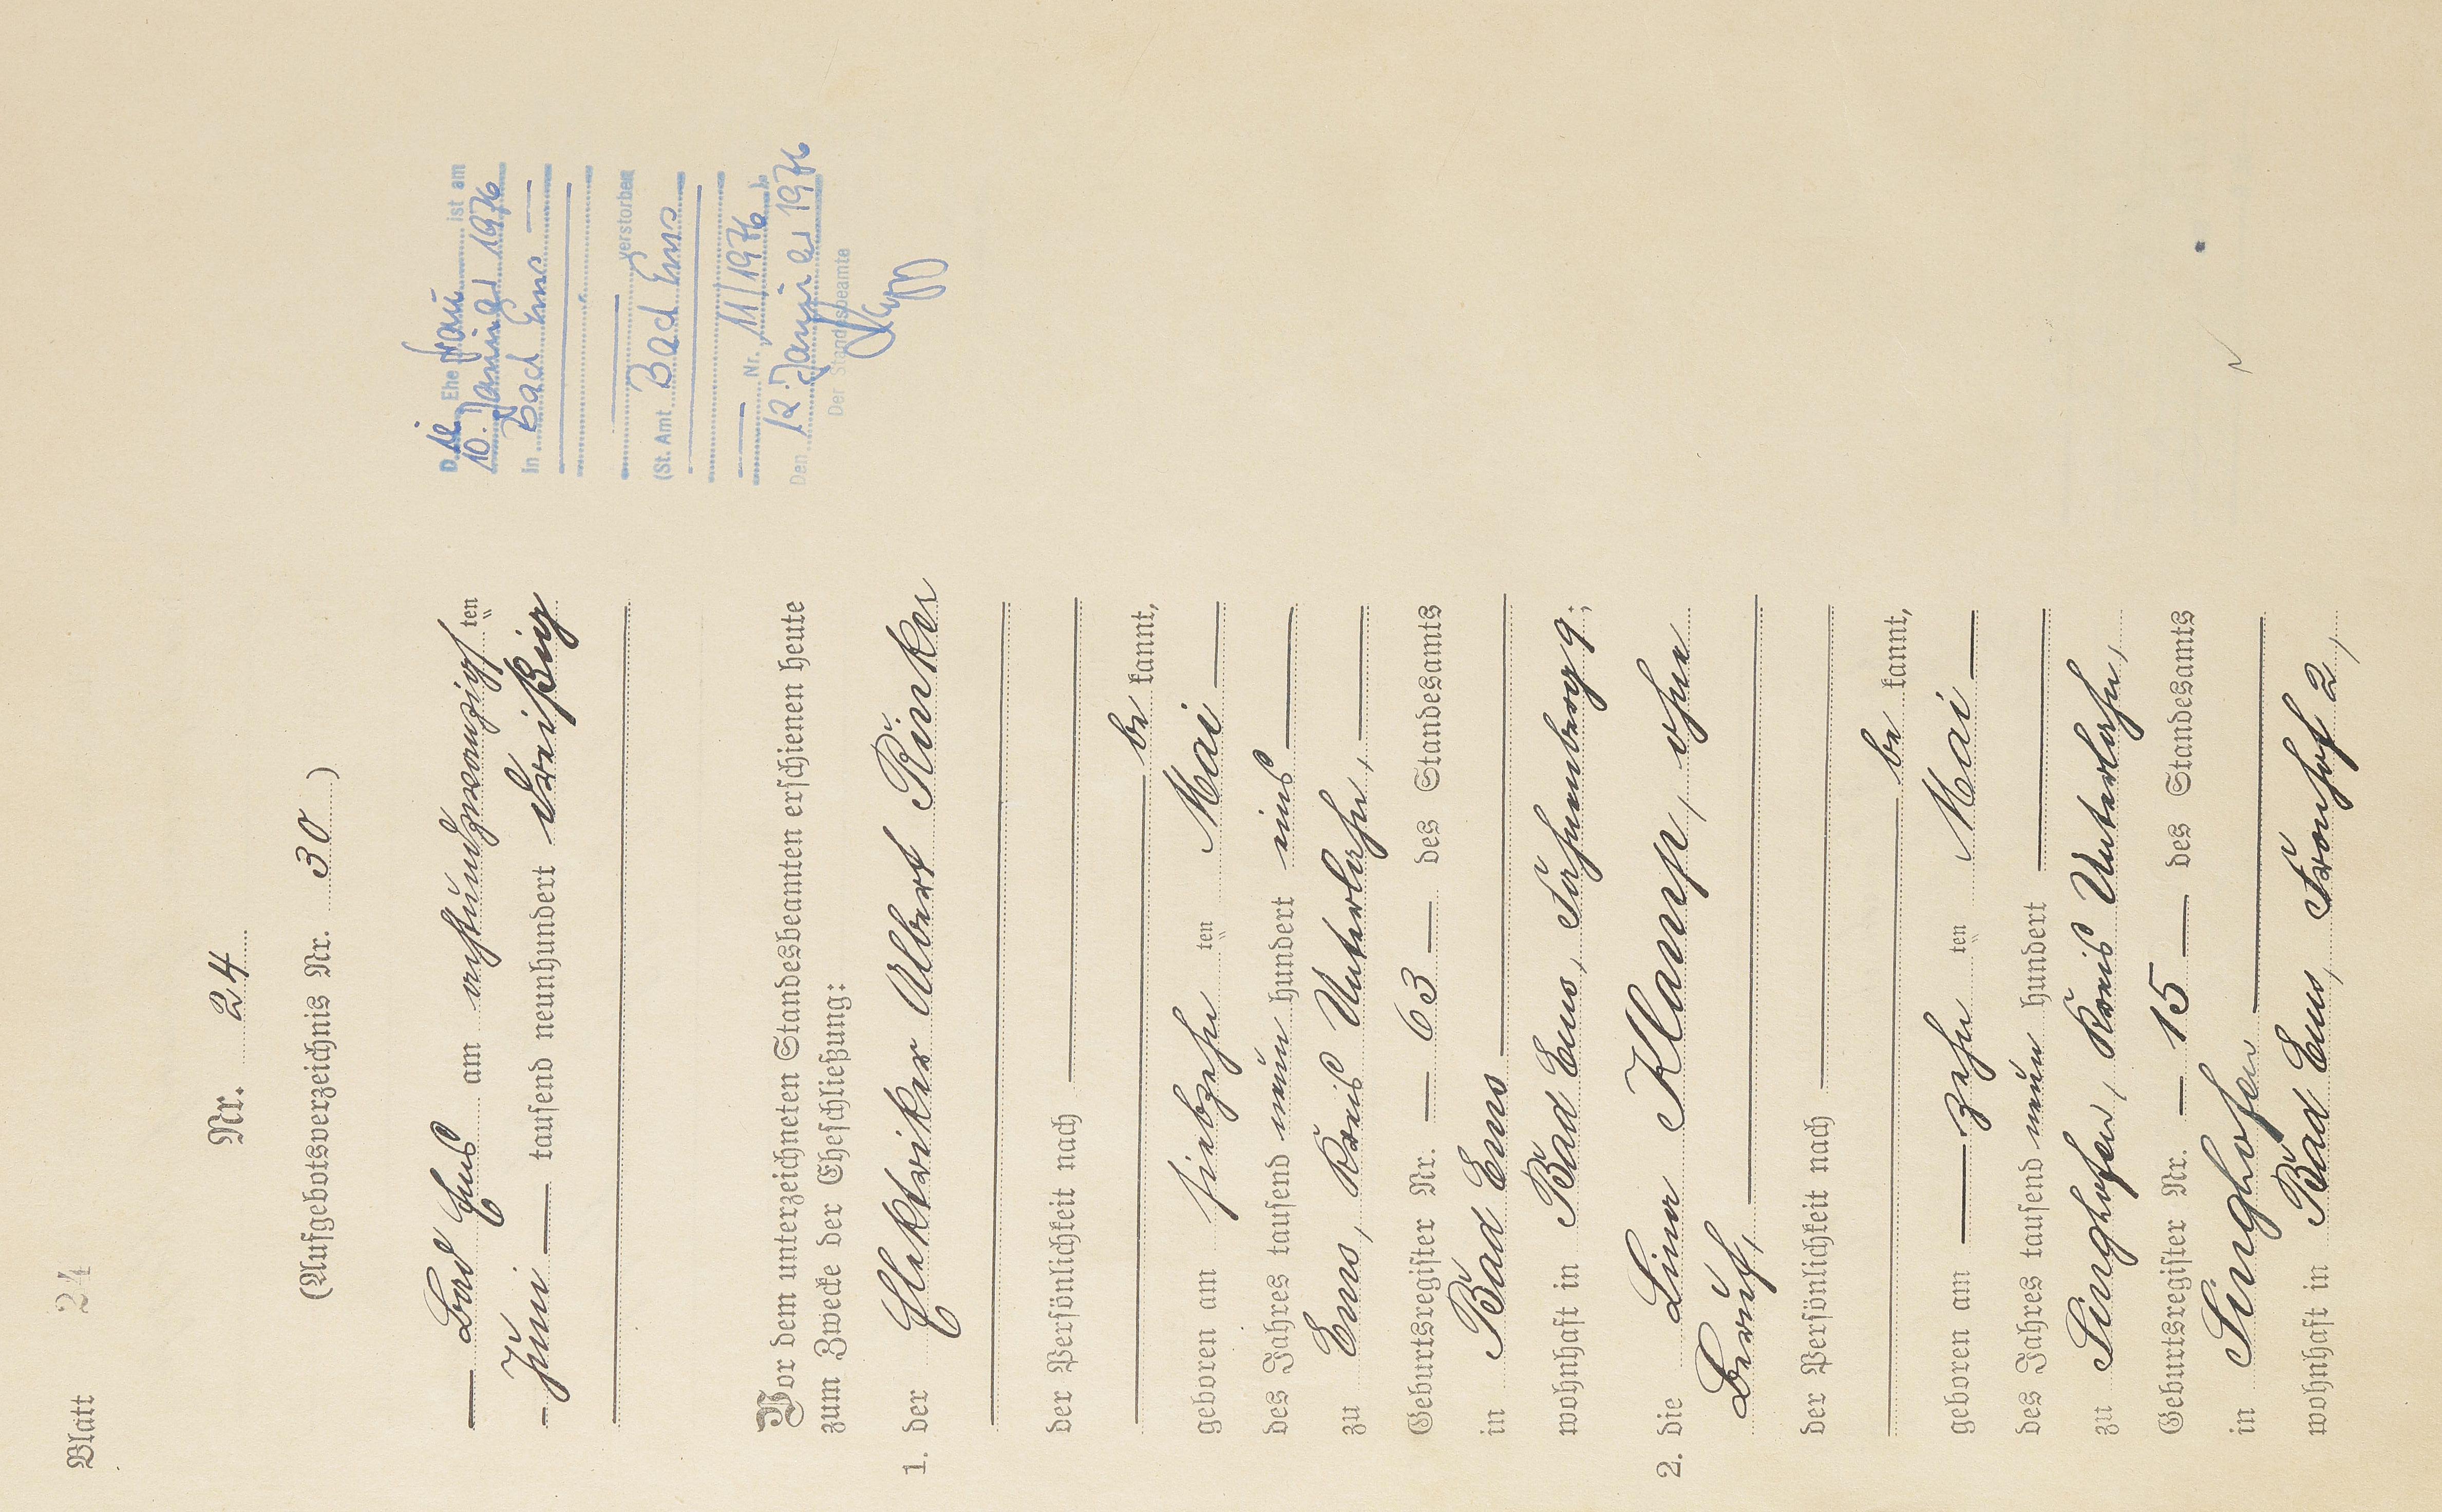 Blatt 24
Nr. 24
(Aufgebotsverzeichnis Nr. 30)
Bad Ems am achtundzwanzigsten
Juni tausend neunhundert dreißig
Vor dem unterzeichneten Standesbeamten erschienen heute
zum Zwecke der Eheschließung:
1. der Elektriker Albert Rinker
der Persönlichkeit nach
be kannt,
geboren am siebzehn ten Mai
des Jahres tausend neun hundert eins
zu Ems, Kreis Unterlahn,
Geburtsregister Nr. 63 des Standesamts
in Bad Ems
wohnhaft in Bad Ems, 9;
2. die Lina Klamp, ohne
Beruf,
der Persönlichkeit nach
be kannt,
geboren am zehn ten Mai
des Jahres tausend neun hundert
zu Singhofen, Kreis Unterlahn,
Geburtsregister Nr. 15 des Standesamts
in Singhofen
wohnhaft in Bad Ems, Fronhof 2,
Die Ehefrau ist am
10. Januar 1976
in Bad Ems
verstorben
(St. Amt Bad Ems
Nr. 11/1976)
Den 12. Januar 1976
Der Standesbeamte